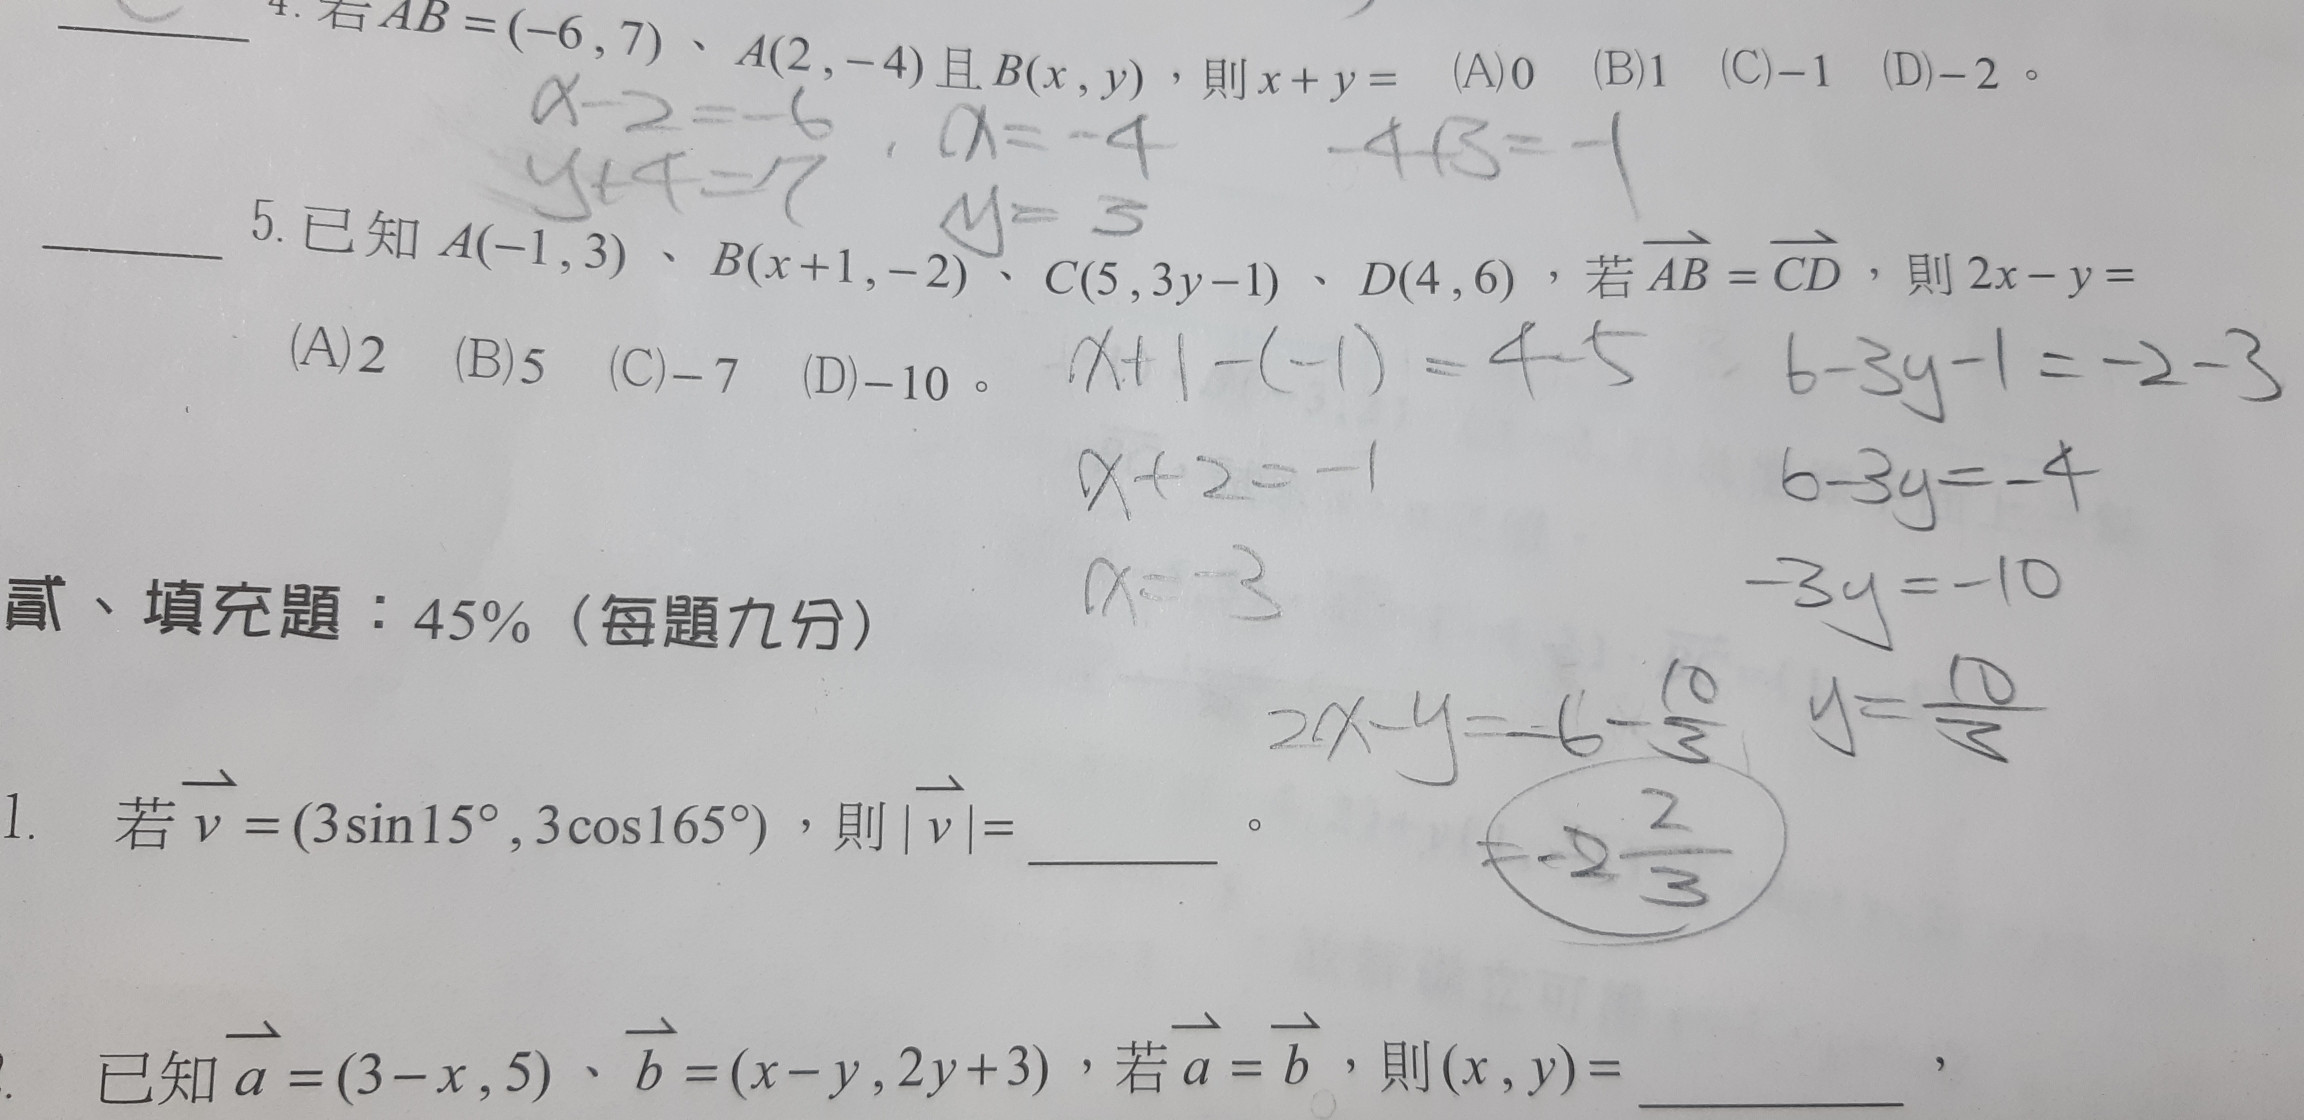 4. 若 AB = (−6 , 7) 、 A(2 , −4) 且 B(x , y) ,則 x + y = (A)0 (B)1 (C)−1 (D)−2 。
x−2=−6 , x=−4 −4+3=−1
y+4=7 y=3
5. 已知 A(−1 , 3) 、 B(x+1 , −2) 、 C(5 , 3y−1) 、 D(4 , 6) ,若 AB = CD ,則 2x − y =
(A)2 (B)5 (C)−7 (D)−10 。
x+1−(−1)=4−5 6−3y−1=−2−3
x+2=−1 6−3y=−4
x=−3 −3y=−10
2x−y=−6−10/3 y=10/3
=−2 2/3
貳、填充題:45%(每題九分)
1. 若 v = (3sin15° , 3cos165°) ,則 | v |= ______ 。
已知 a = (3−x , 5) 、 b = (x−y , 2y+3) ,若 a = b ,則 (x , y) = ______ ,